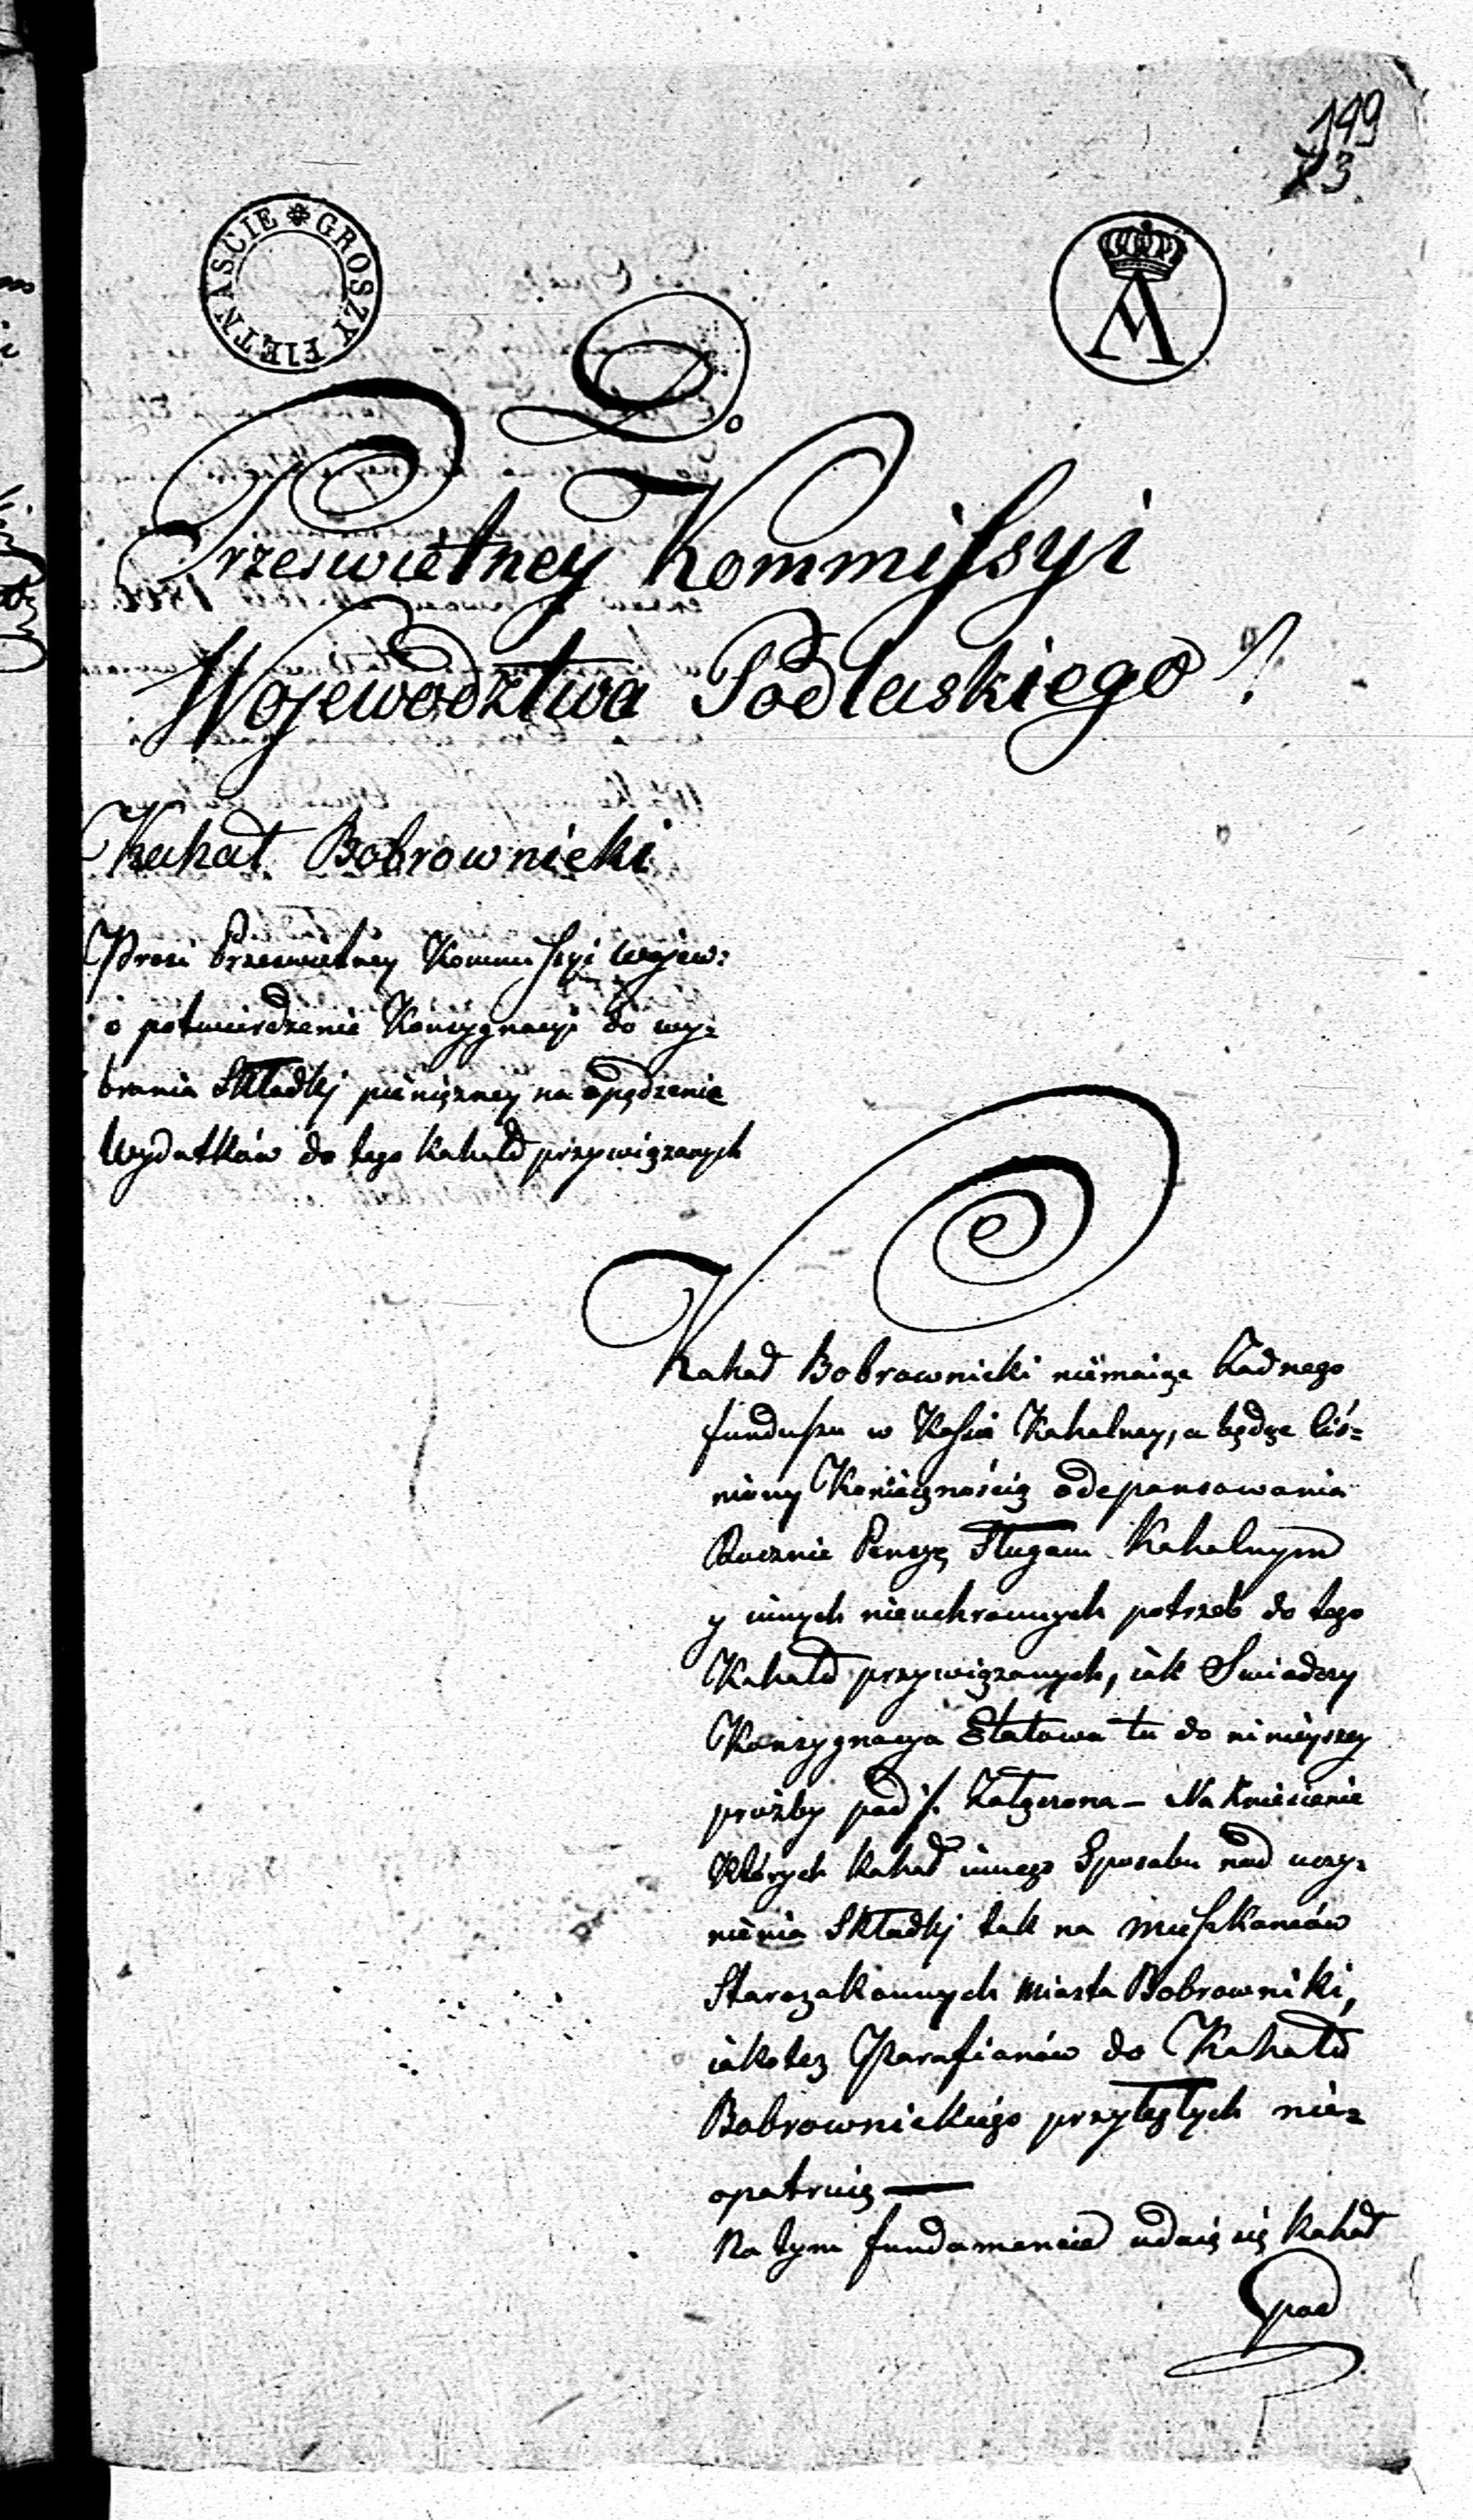 149
73.
GROSZY PIĘTNAŚCIE
A
D.
Prześwietney Kommissyi
Wojewodztwa Podlaskiego!
Kahał Bobrownicki
Prosi Przeswietney Kommissyi Wojew:
o potwierdzenie Konsygnacyi do wy=
brania Składki pieniężney na opędzenie
Wydatków do tego Kahału przywiązanych
Kahał Bobrownicki niemaiąc Żadnego
funduszu w Kassie Kahalney, a będąc ciś=
niony Koniecznością odepensowania
Rocznie Pensyę Sługom Kahalnym
y innych nieuchronnych potrzeb do tego
Kahału przywiązanych, iak Swiadczy
Konsygnacya Etatowa tu do ninieyszey
proźby pod ./. Załączona – Na Zniesienie
Których Kahał innego Sposobu nad uczy=
nienia Składki tak na Mieszkańców
Starozakonnych Miasta Bobrowniki,
iakotez Parafianów do Kahału
Bobrownickiego przyległych nie=
opatruię —
Na tym fundamencie udaię się Kahał
pod